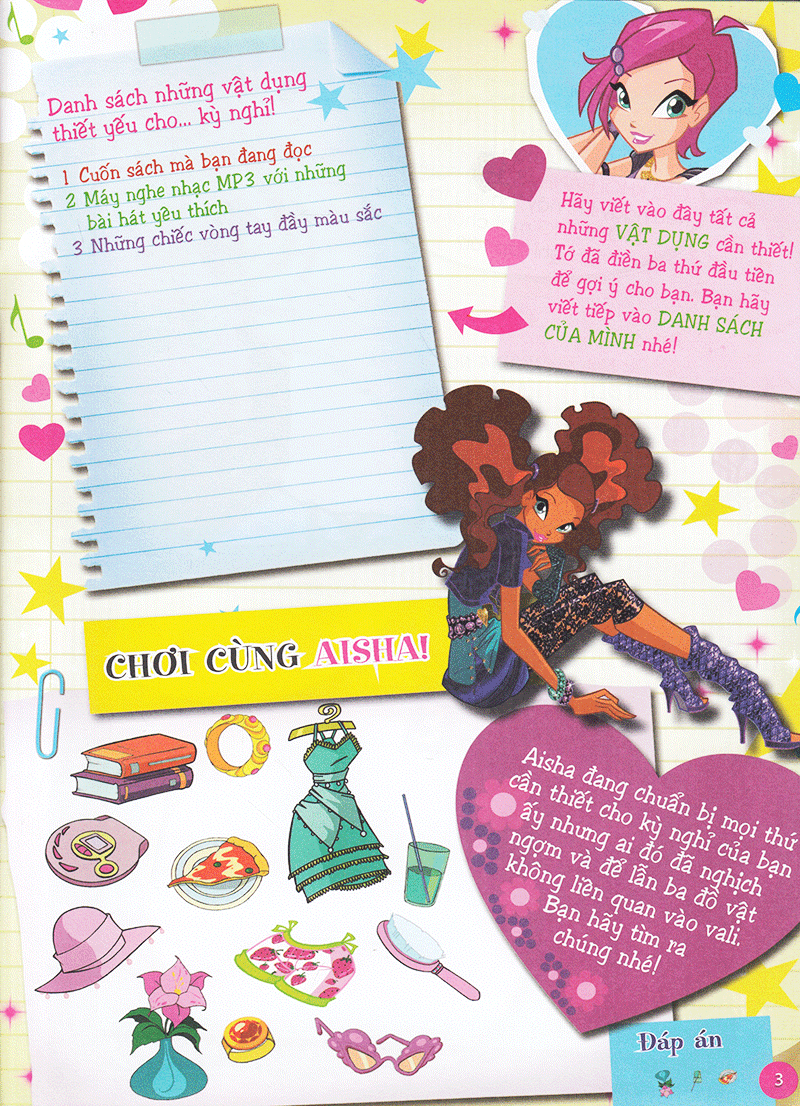 Danh sách những vật dụng
thiết yếu cho... kỳ nghỉ!
1 Cuốn sách mà bạn đang đọc
2 Máy nghe nhạc MP3 với những
bài hát yêu thích
3 Những chiếc vòng tay đầy màu sắc
Hãy viết vào đây tất cả
những VẬT DỤNG cần thiết!
Tớ đã điền ba thứ đầu tiên
để gợi ý cho bạn. Bạn hãy
viết tiếp vào DANH SÁCH
CỦA MÌNH nhé!
CHƠI CÙNG AISHA!
Aisha đang chuẩn bị mọi thứ
cần thiết cho kỳ nghỉ của bạn
ấy nhưng ai đó đã nghịch
ngợm và để lẫn ba đồ vật
không liên quan vào vali.
Bạn hãy tìm ra
chúng nhé!
Đáp án
3